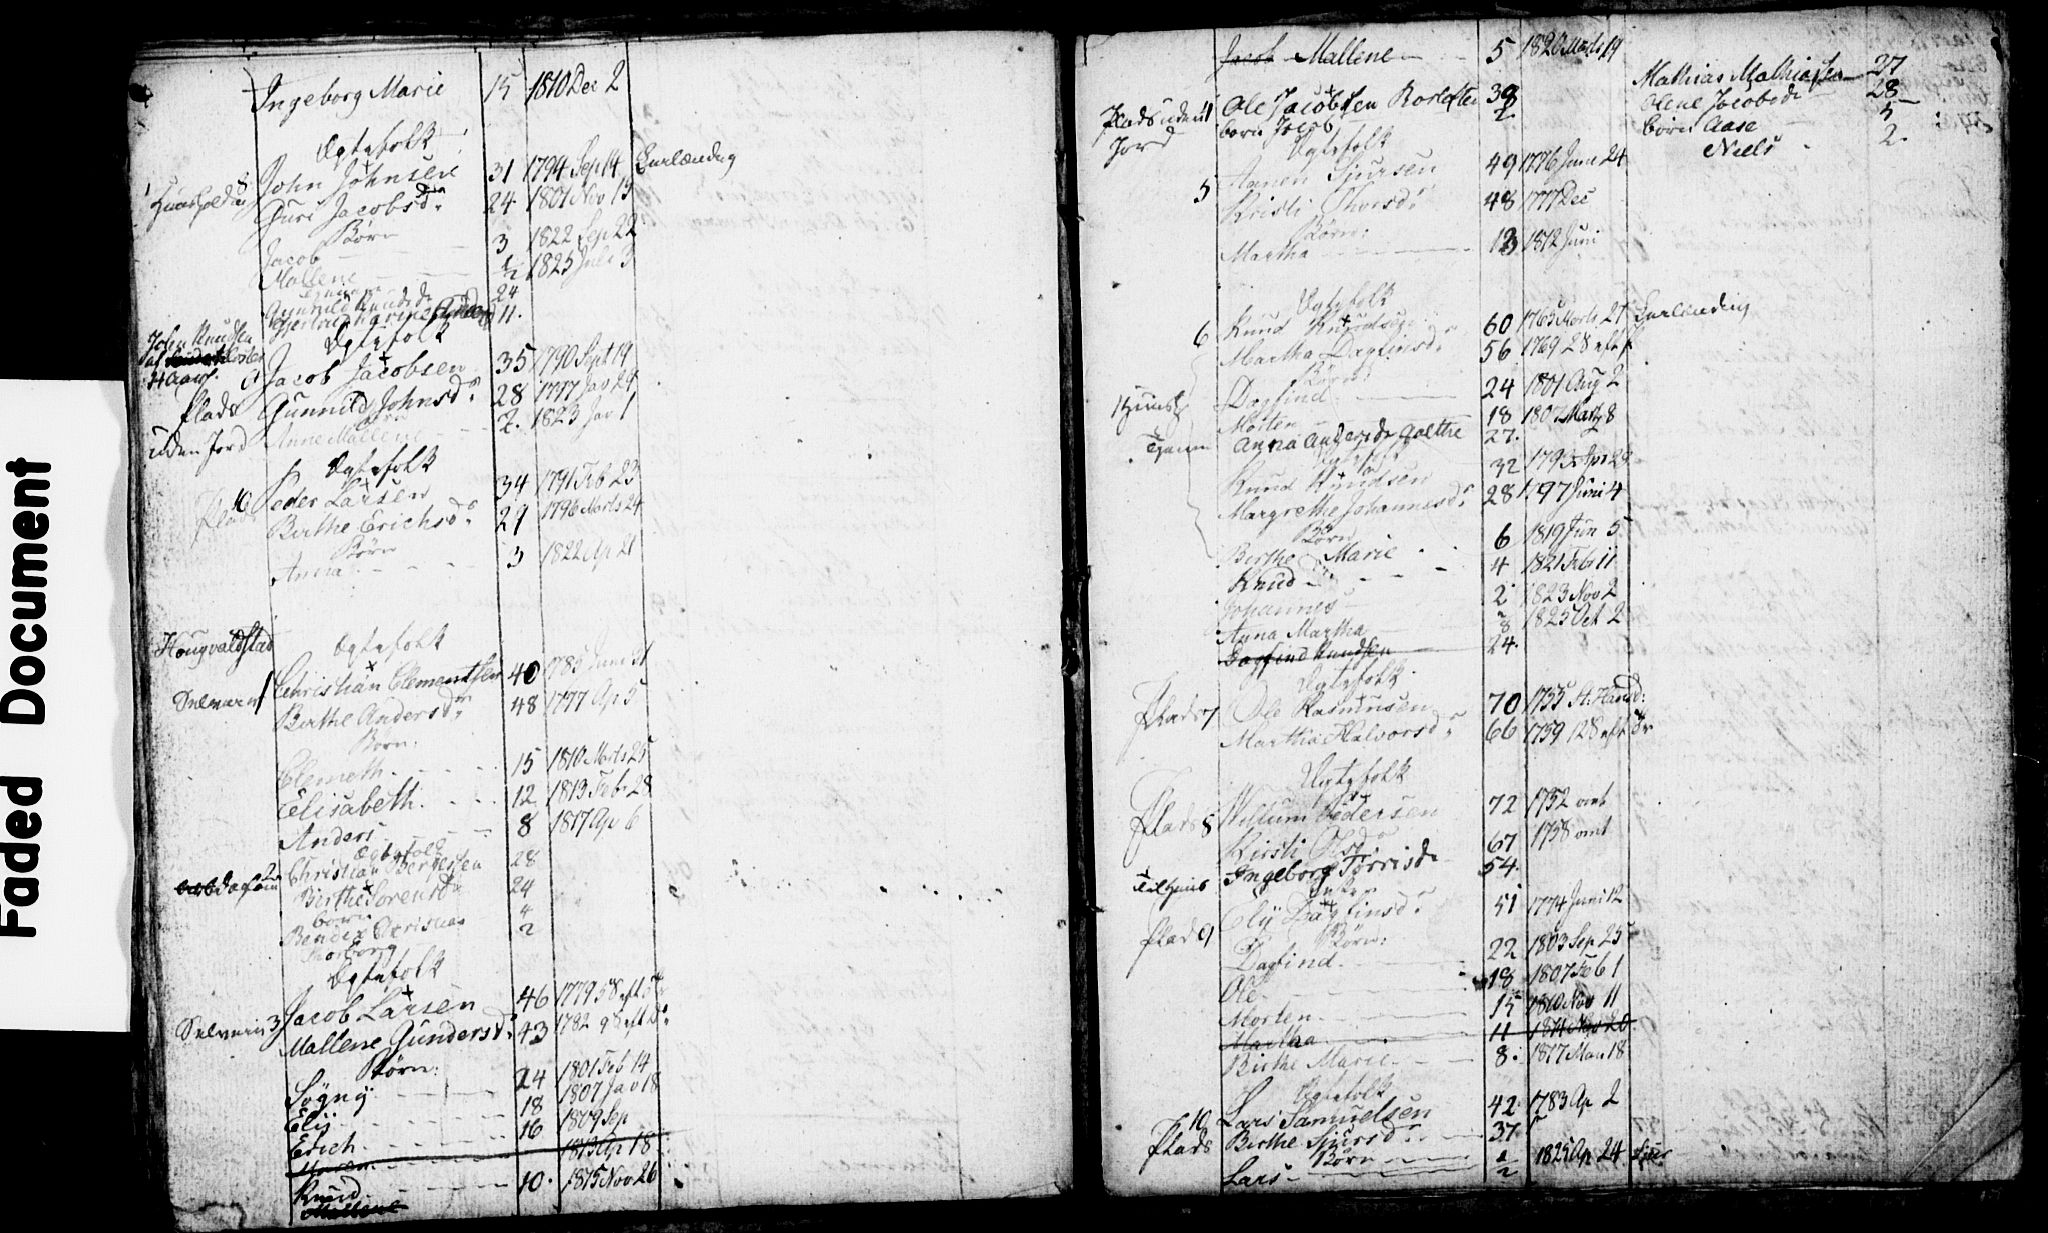 Faded Document
Ingeborg Marie 15 1810 Dec 2
Ægtefolk
8 John Johnsen 31 1794 Sep 14
Guri Jacobsd. 24 1801 Nov 15
Børn
Jacob 3 1822 Sep 22
Mallene 1/2 1825 Juli 3
Gunnild Knudsd 24
11.
John Knudsen
Ægtefolk
Jacob Jacobsen 35 1790 Sept 19
Plads Gunnild Johnsd. 28 1797 Jav 24
uden Jord Anne Mallene 2. 1823 Jav 1
Ægtefolk
10 Peder Larsen 34 1791 Feb 23
Plads Birthe Erichsd. 29 1796 Marts 24
Børn
Anna 3 1822 Ap 21
Hougvaldstad Ægtefolk
1 Christian Clementsen 40 1785 Juni 31
Birthe Andersd. 48 1777 Ap 5
Børn:
Clemeth 15 1810 Marts 25
Elisabeth. 12 1813 Febr 28
Anders 8 1817 Ap 6
Ægtefolk
Christian Bentsen 28
Birthe Sorensd 24
børn
Bendix Christian 4
2
Ægtefolk
Jacob Larsen 46 1779 5 S eft
3 Mallene Gundersd. 43 1782 9 S eft
Børn:
Sögny 24 1801 Feb 14
Elij 18 1807 Jav 18
Erich 16 1809 Sep
1813 Ap 18
Knud 10. 1815 Nov 26
Mallene
Jacob Mallene 5 1820 Marts 19
Plads uden Jord 4 Ole Jacobsen 38
børn Jacob 2
Mathias Mathiasen 27
Olene Jacobsd 28
børn Aase 5
Niels 2.
Ægtefolk
5 Aanen Sjursen 49 1776 Juni 24
Kristi Thorsd. 48 1777 Dec
Børn:
Martha 13 1812 Juni
Ægtefolk
6 Knud Knudsen 60 1765 Marts 21
Martha Dagfinsd. 56 1769 28 eft
Børn:
Dagfind 24 1801 Aug 2
Morten 18 1807 Marts 8
Anna Andersd 27.
Ægtefolk
Knud Knudsen 32 1793 Apr 29
Margrethe Johannesd. 28 1797 Juni 4
Børn
Berthe Marie 6 1819 Jun 5
Knud 4 1821 Febr 11
Johannes 2 1823 Nov 2
Anna Martha 1825 Oct 2
Dagfind Knudsen 24.
Ægtefolk
Plads 7 Ole Rasmusen 70 1755
Martha Halvorsd. 66 1759 12 S eft
Ægtefolk
Plads 8 Pedersen 72 1752 omt
Kirsti Olsd. 67 1758 omt
Ingeborg Torrisd 54.
Enke
Plad 9 Elij Dagfinsd. 51 1774 Juni 12
Børn:
Dagfind 22 1803 Sep 25
Ole 18 1807 Feb 1
Morten 15 1810 Nov 11
Martha 11 1814 Nov 20
Birthe Marie 8. 1817 Mau 18
Ægtefolk
10 Lars Samuelsen 42 1783 Ap 2
Plads Birthe Sjursd. 37
Børn
Lars 1/2 1825 Ap 24